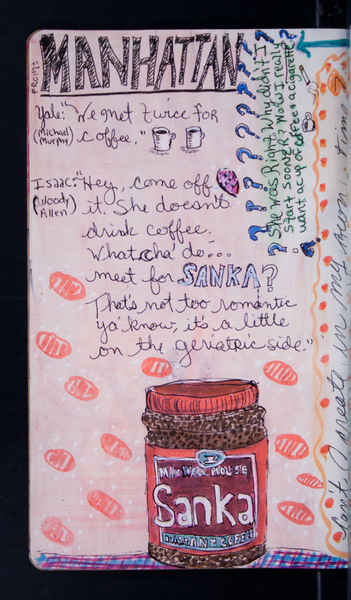 FROM:
MANHATTAN
Yale: "We met twice for
(Michael Murphy) coffee."
Isaac: "Hey, come off
(Woody Allen) it. She doesn't
drink coffee.
Whatcha do...
meet for SANKA?
That's not too romantic
ya' know, it's a little
on the geriatric side."
She was Right. Why didn't I
start sooner? Would I really
want a cup of coffee & a cigarette?
MAXWELL HOUSE
Sanka
INSTANT COFFEE
create in my own